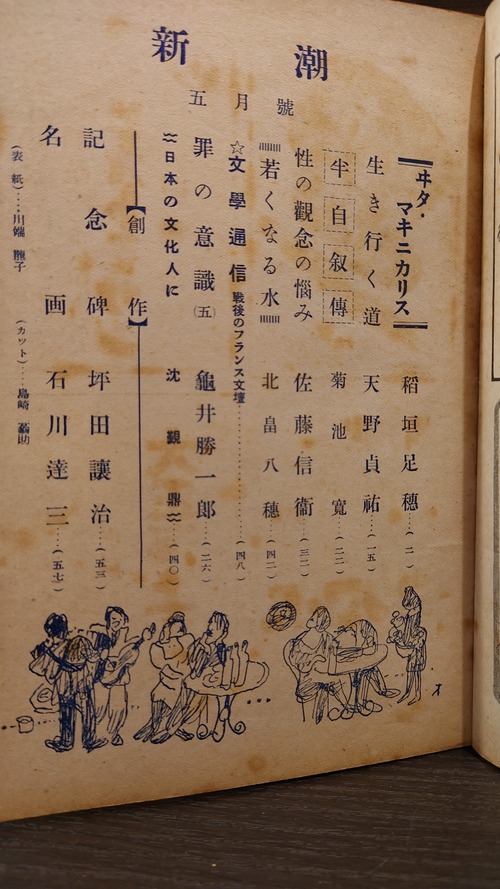 新潮
五月號
ヰタ・マキニカリス 稲垣足穗…(二)
生き行く道 天野貞祐…(一五)
半自叙傳 菊池寛…(二二)
性の觀念の悩み 佐藤信衞…(三二)
若くなる水 北畠八穗…(四二)
☆文學通信 戰後のフランス文壇…(四八)
罪の意識(五) 龜井勝一郎…(二六)
日本の文化人に 沈覲鼎(四〇)
【創作】
記念碑 坪田讓治…(五三)
名画 石川達三…(五七)
(表紙)…川端龍子
(カット)…島崎蓊助